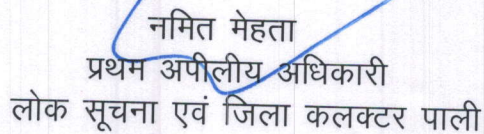 नमित मेहता
प्रथम अपीलीय अधिकारी
लोक सूचना एवं जिला कलक्टर पाली